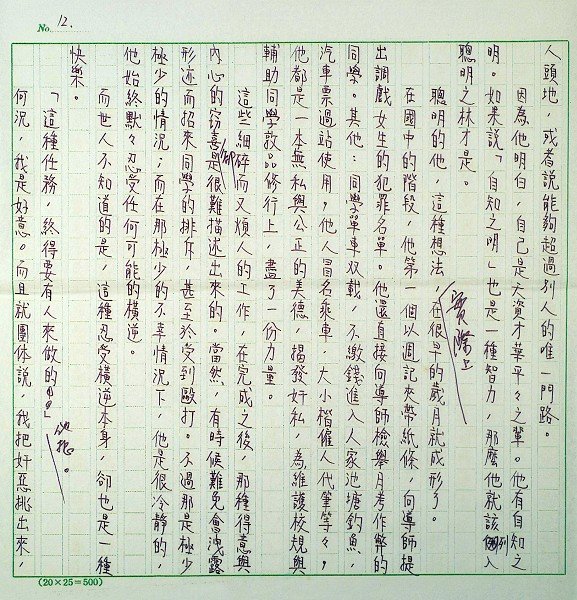 No. 12.
人頭地，或者說能夠超過別人的唯一門路。
因為他明白，自己是天資才華平々之輩。他有自知之
明。如果說「自知之明」也是一種智力，那麼他就該列入
聰明之林才是。
實際上
聰明的他，這種想法，在很早的歲月就成形了。
在國中的階段，他第一個以週記夾帶紙條，向導師提
出調戲女生的犯罪名單。他還直接向導師檢舉月考作弊的
同學。其他：同學單車双載，不繳錢進入人家池塘釣魚，
汽車票過站使用，他人冒名乘車，大小楷僱人代筆等々，
他都是一本無私與公正的美德，揭發奸私，為維護校規與
輔助同學敦品修行上，盡了一份力量。
這些細碎而又煩人的工作，在完成之後，那種得意與
內心的竊喜，卻是很難描述出來的。當然，有時候難免會洩露
形迹而招來同學的排斥，甚至於受到毆打。不過那是極少
極少的情況；而在那極少的不幸情況下，他是很冷靜的，
他始終默々忍受任何可能的橫逆。
而世人不知道的是，這種忍受橫逆本身，卻也是一種
快樂。
「這種任務，終得要有人來做的。」他想。
何況，我是好意。而且就團体說，我把奸惡挑出來，
(20×25=500)